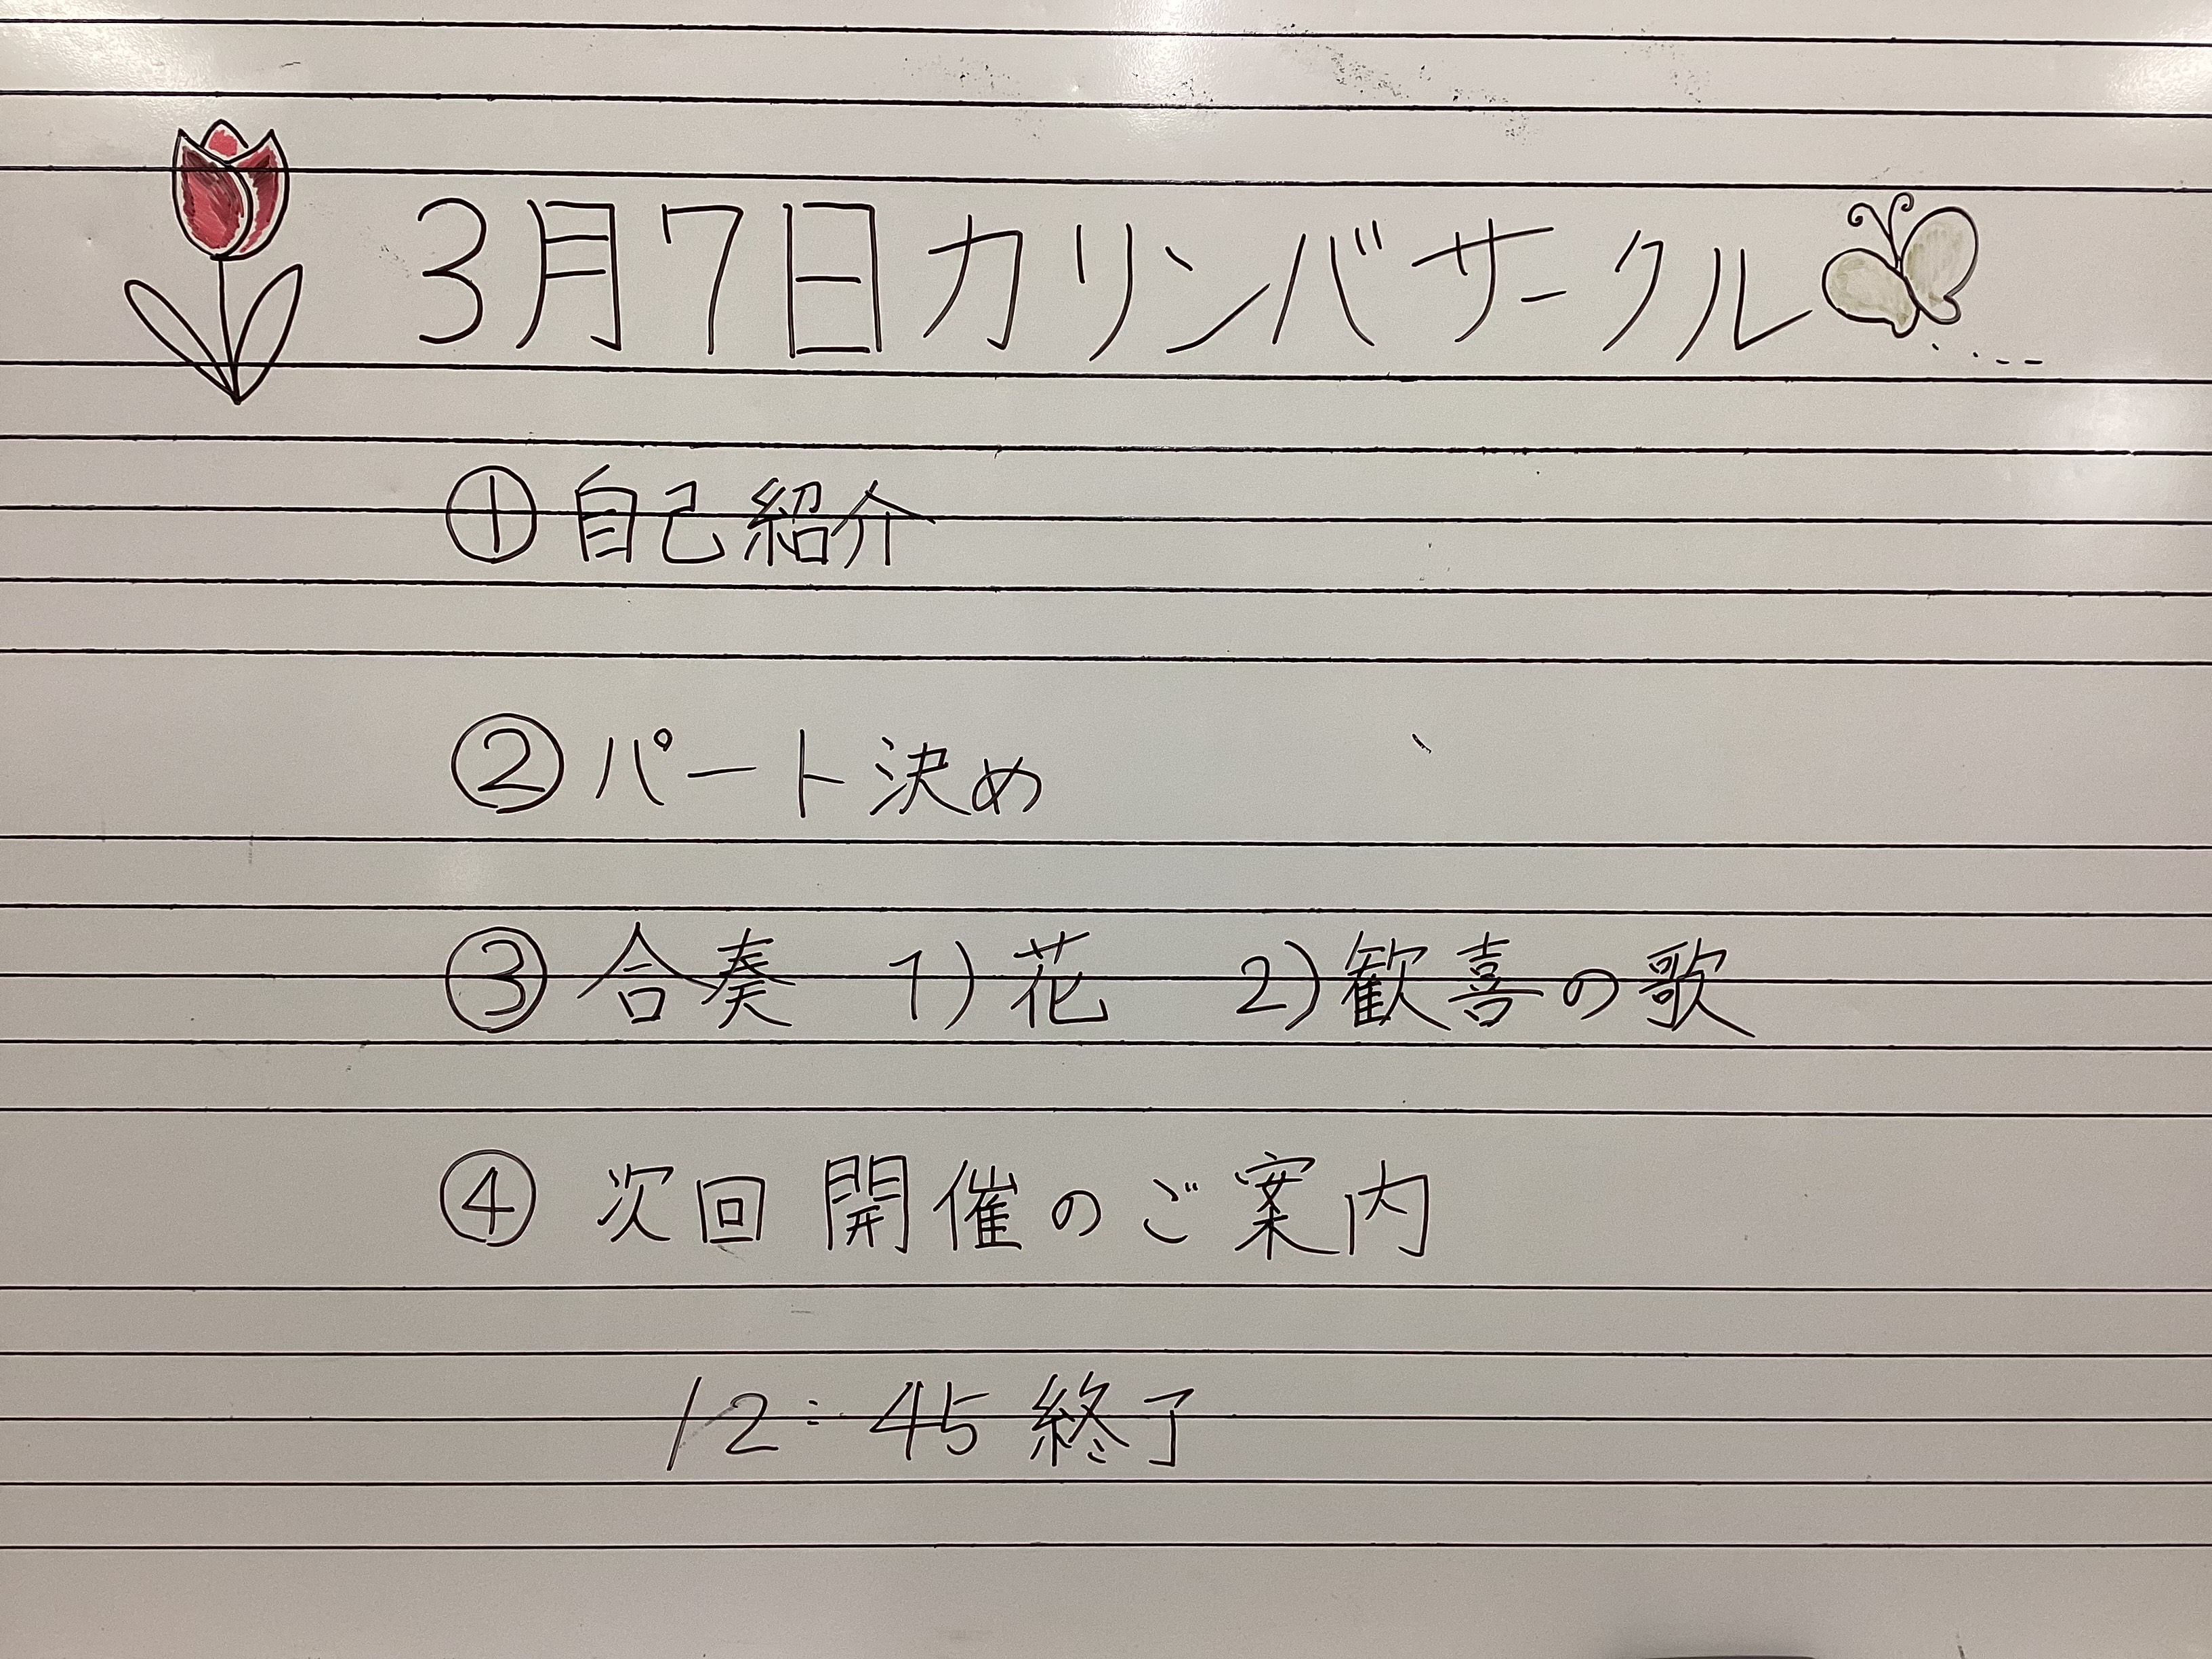 3月7日カリンバサークル
①自己紹介
②パート決め
③合奏 1)花 2)歓喜の歌
④次回開催のご案内
12:45終了